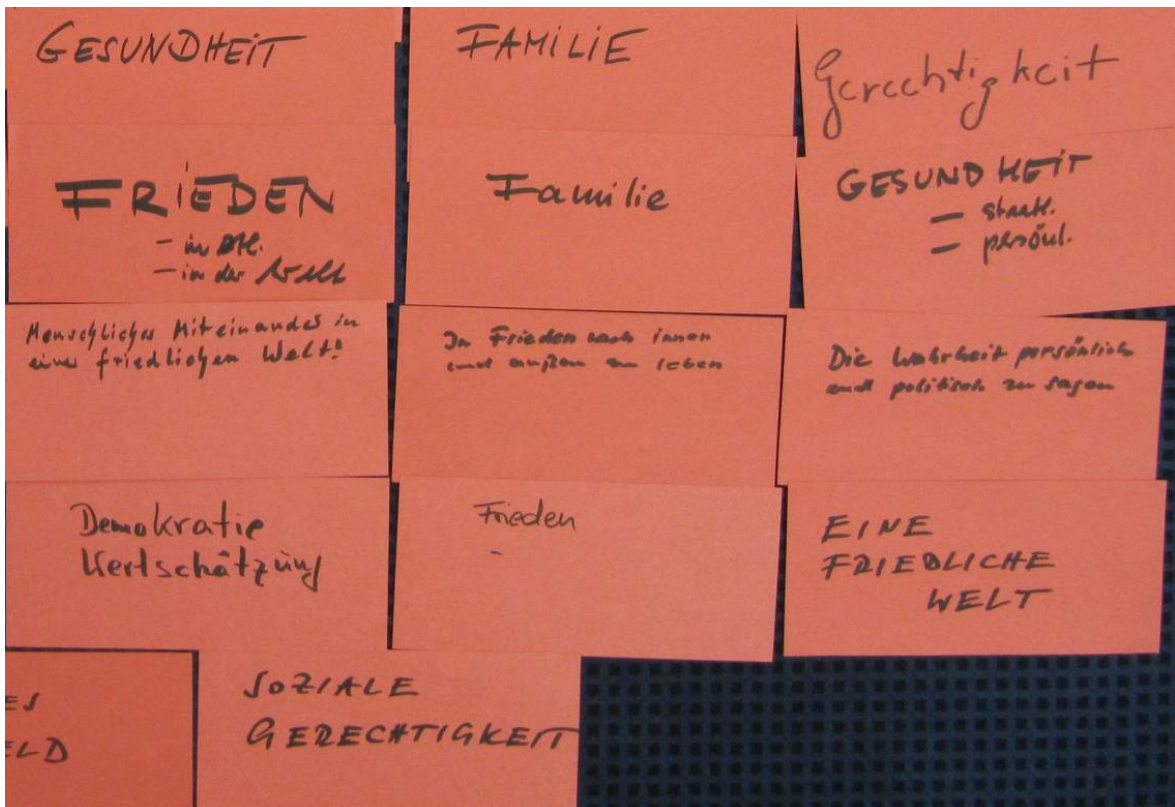 GESUNDHEIT
FAMILIE
Gerechtigkeit
FRIEDEN
- in Dtl.
- in der Welt
Familie
GESUNDHEIT
- staatl.
- persönl.
Menschliches Miteinander in
einer friedlichen Welt!
In Frieden nach innen
und außen zu leben
Die Wahrheit persönlich
und politisch zu sagen
Demokratie
Wertschätzung
Frieden
-
EINE
FRIEDLICHE
WELT
ES
ELD
SOZIALE
GERECHTIGKEIT